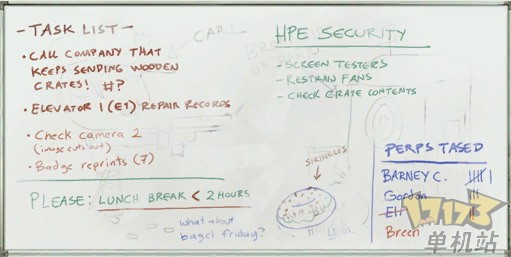 - TASK LIST -
• CALL COMPANY THAT
KEEPS SENDING WOODEN
CRATES! #?
• ELEVATOR 1 (E1) REPAIR RECORDS
• Check camera 2
(image cuts out)
• Badge reprints (7)
PLEASE: LUNCH BREAK < 2 HOURS
what about
bagel friday?
CARL
HPE SECURITY
- SCREEN TESTERS
- RESTRAIN FANS
- CHECK CRATE CONTENTS
SPRINKLES
PERPS TASED
BARNEY C.
Gordon
Eli
Breen
17173
单机站